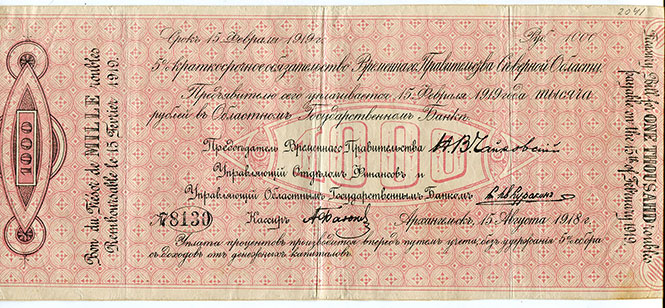 2041
Срокъ 15 Февраля 1919 г.
Руб. 1000
5% краткосрочное обязательство Временнаго Правительства Сѣверной Области.
Предъявителю сего уплачивается 15 Февраля 1919 года тысяча
рублей въ Областномъ Государственномъ Банкѣ.
Предсѣдатель Временнаго Правительства Н В Чайковскій
Управляющій Отдѣломъ Финансовъ и
Управляющій Областнымъ Государственнымъ Банкомъ
1000
№ 78130
Кассиръ
Архангельскъ, 15 Августа 1918 г.
Уплата процентовъ производится впередъ путемъ учета, безъ удержанія 5% сбора
съ доходовъ отъ денежныхъ капиталовъ.
1000
Bon du Trésor de MILLE roubles
Remboursable le 15 Février 1919.
Treasury Bill for ONE THOUSAND roubles
payable on the 15th of February 1919.